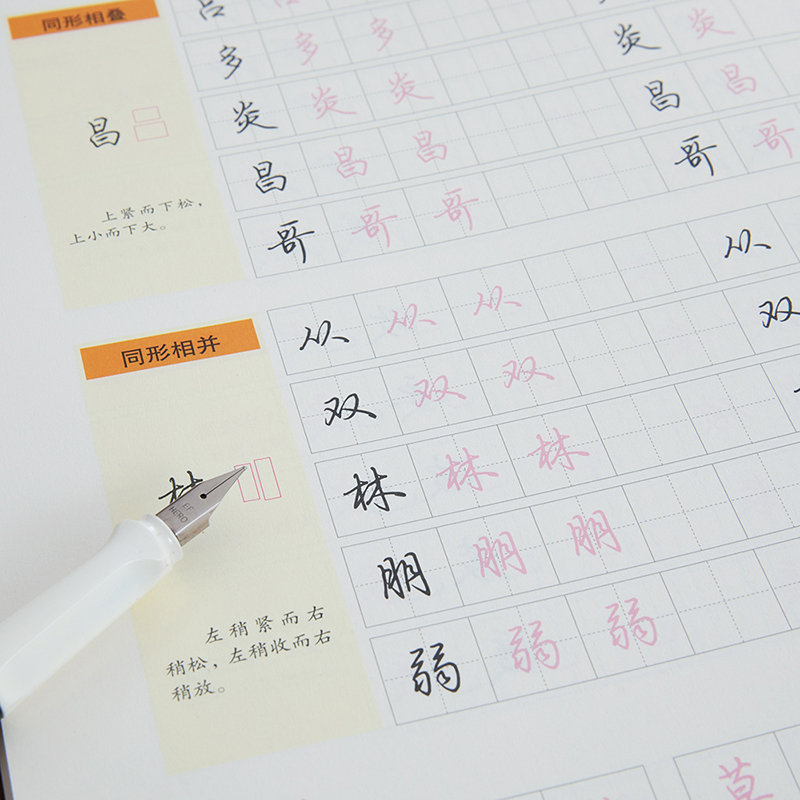 同形相叠
昌
上紧而下松，
上小而下大。
吕
多 多 多
炎 炎 炎 炎 炎
昌 昌 昌 昌 昌
哥 哥 哥 哥 哥
同形相并
林
左稍紧而右
稍松，左稍收而右
稍放。
从 从 从 从
双 双 双 双
林 林 林
朋 朋 朋
弱 弱 弱
莫
EF
HERO